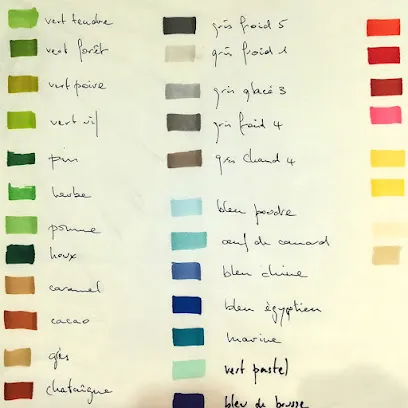 vert tendre
vert forêt
vert poire
vert vif
pin
herbe
pomme
houx
caramel
cacao
grès
chataîgne
gris froid 5
gris froid 1
gris glacé 3
gris froid 4
gris chaud 4
bleu poudre
œuf de canard
bleu chine
bleu égyptien
marine
vert pastel
bleu de prusse